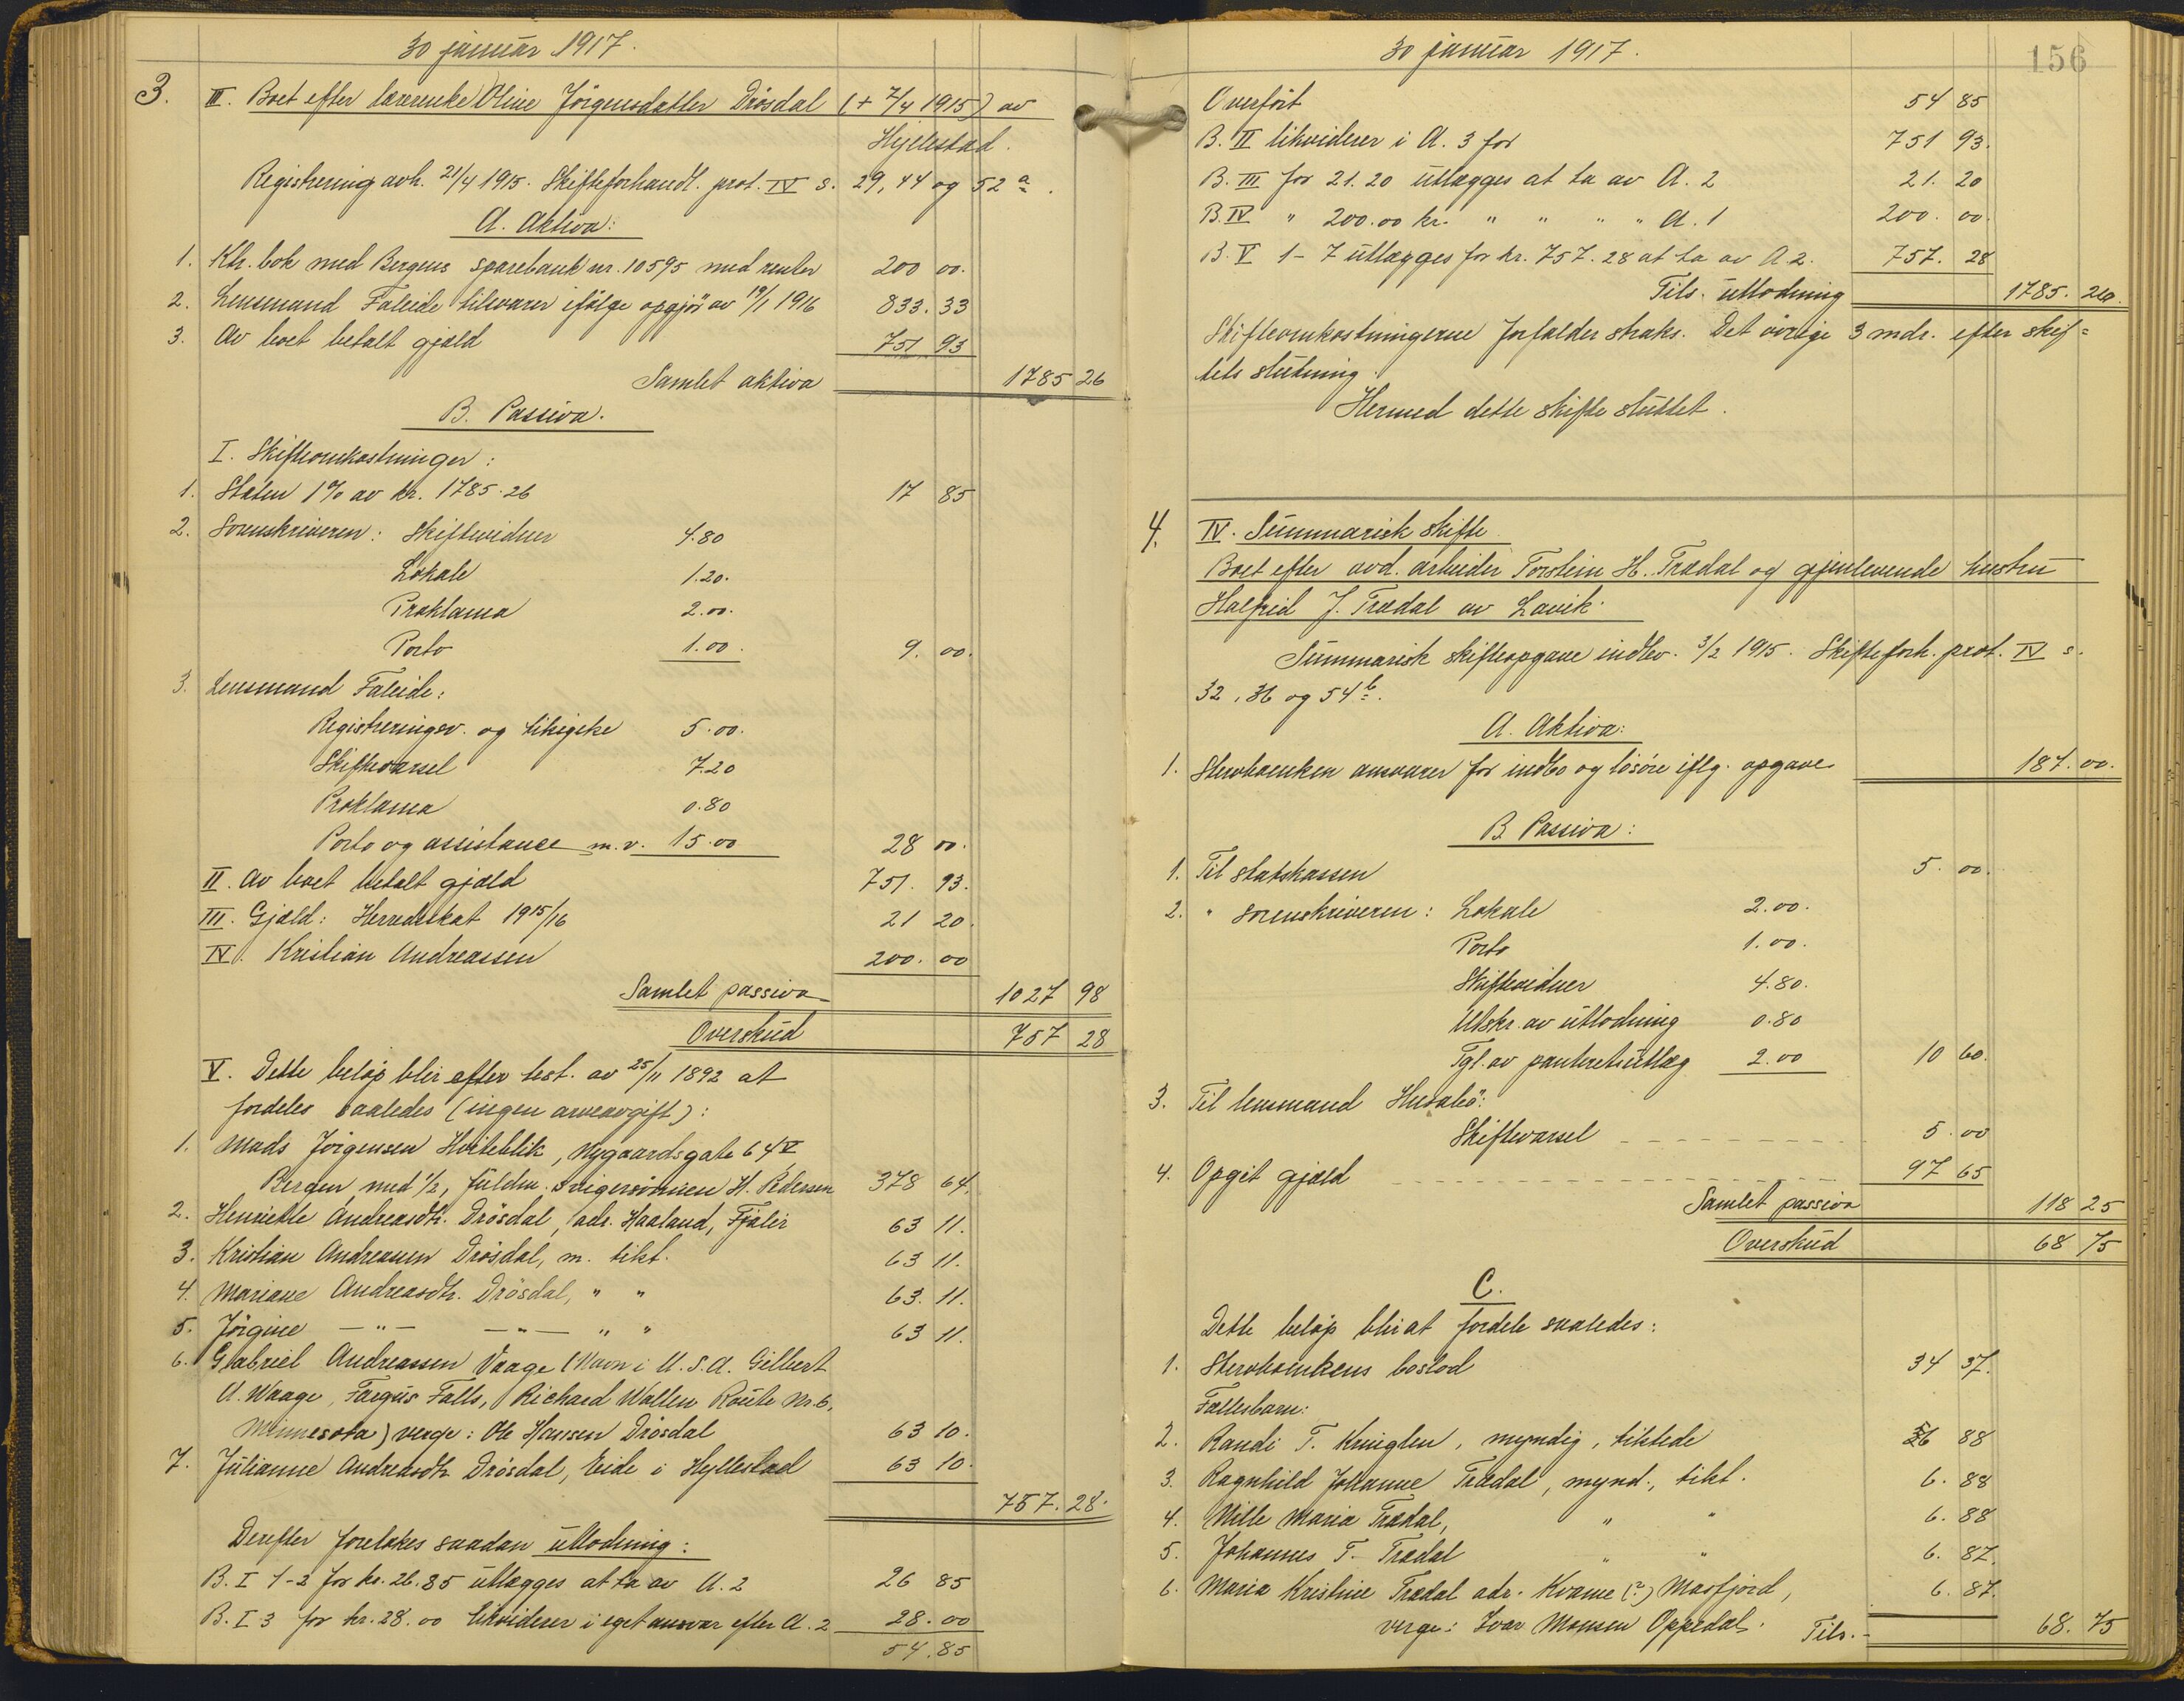 30 januar 1917.
3. III. Boet efter lærerenke Oline Jörgensdatter Drösdal (+ 7/4 1915) av
Hyllestad.
Registrering avh. 21/4 1915. Skifteforhandl. prot. IV s. 29, 44 og 52 a.
A. Aktiva:
1. Ktr. bok med Bergens sparebank nr. 10595 med renter 200 00.
2. Lensmand Faleide tilsvarer ifölge opgjör av 19/1 1916 833. 33
3. Av boet betalt gjæld 751 93
Samlet aktiva 1785 26
B. Passiva.
I. Skifteomkostninger:
1. Staten 1% av kr. 1785.26 17 85
2. Sorenskriveren: Skiftevidner 4.80
Lokale 1.20.
Proklama 2.00.
Porto 1.00. 9. 00.
3. Lensmand Faleide:
Registreringsv. og 5.00.
Skiftevarsel 7.20
Proklama 0.80
Porto og assistance m.v. 15.00 28 00.
II. Av boet betalt gjæld 751. 93.
III. Gjæld: Herredsskat 1915/16 21 20.
IV. Kristian Andreassen 200. 00
Samlet passiva 1027 98
Overskud 757 28
V. Dette belöp blir efter test. av 25/11 1892 at
fordeles saaledes (ingen arveavgift):
1. Mads Jörgensen Hviteblik, Nygaardsgate 64 V
Bergen med 1/2, fuldm. svigersönnen H. Pedersen 378 64.
2. Henriette Andreasdtr. Drösdal, adr. Haaland, Fjaler 63 11.
3. Kristian Andreassen Drösdal, m. tikt. 63 11.
4. Mariane Andreasdtr. Drösdal, " " 63. 11.
5. Jörgine — " — — " — " " 63 11.
6. Gabriel Andreassen Vaage (Navn i U.S.A. Gilbert
A. Waage, Færgus Falls, Richard Wallen Route Nr. 6,
Minnesota) verge: Ole Hansen Drösdal 63 10.
7. Julianne Andreasdtr Drösdal, Eide i Hyllestad 63 10.
757. 28.
Derefter foretokes saadan utlodning:
B. I 1-2 for kr. 26.85 utlægges at ta av A. 2 26 85
B. I 3 for kr. 28.00 likviderer i eget ansvar efter A. 2 28. 00
54. 85
30 januar 1917.
156
Overfört 54 85
B. II likviderer i A. 3 for 751 93.
B. III for 21.20 utlægges at ta av A. 2 21. 20
B. IV " 200.00 kr. " " " " A. 1 200. 00.
B. V 1-7 utlægges for kr. 757.28 at ta av A 2. 757. 28
Tils. utlodning 1785. 26.
Skifteomkostningerne forfalder straks. Det övrige 3 mdr. efter skif=
tets slutning.
Hermed dette skifte sluttet.
4. IV. Summarisk skifte
Boet efter avd. arbeider Torstein H. Trædal og gjenlevende hustru
Halfrid J. Trædal av Lavik.
Summarisk skifteopgave indlev. 3/2 1915. Skifteforh. prot. IV s.
32, 36 og 54 b.
A. Aktiva:
1. Stervboenken ansvarer for indbo og lösöre iflg. opgave 187. 00.
B. Passiva:
1. Til statskassen 5. 00.
2. " sorenskriveren: Lokale 2.00.
Porto 1.00.
Skiftevidner 4.80.
Utskr. av utlodning 0.80
Tgl. av panteretsutlæg 2.00 10 60.
3. Til lensmand Husabö:
Skiftevarsel 5. 00
4. Opgit gjæld 97 65
Samlet passiva 118 25
Overskud 68 75
C.
Dette belöp blir at fordele saaledes:
1. Stervboenkens boslod 34 37.
Fællesbarn:
2. Randi T. Kringlen, myndig, tiktede 6 88
3. Ragnhild Johanne Trædal, mynd., tikt. 6. 88
4. Nille Maria Trædal, " " 6. 88
5. Johannes T. Trædal " " 6. 87.
6. Maria Kristine Trædal adr. Kvame (?) Masfjord, 6. 87.
verge: Ivar Monsen Oppedal. Tils. 68. 75